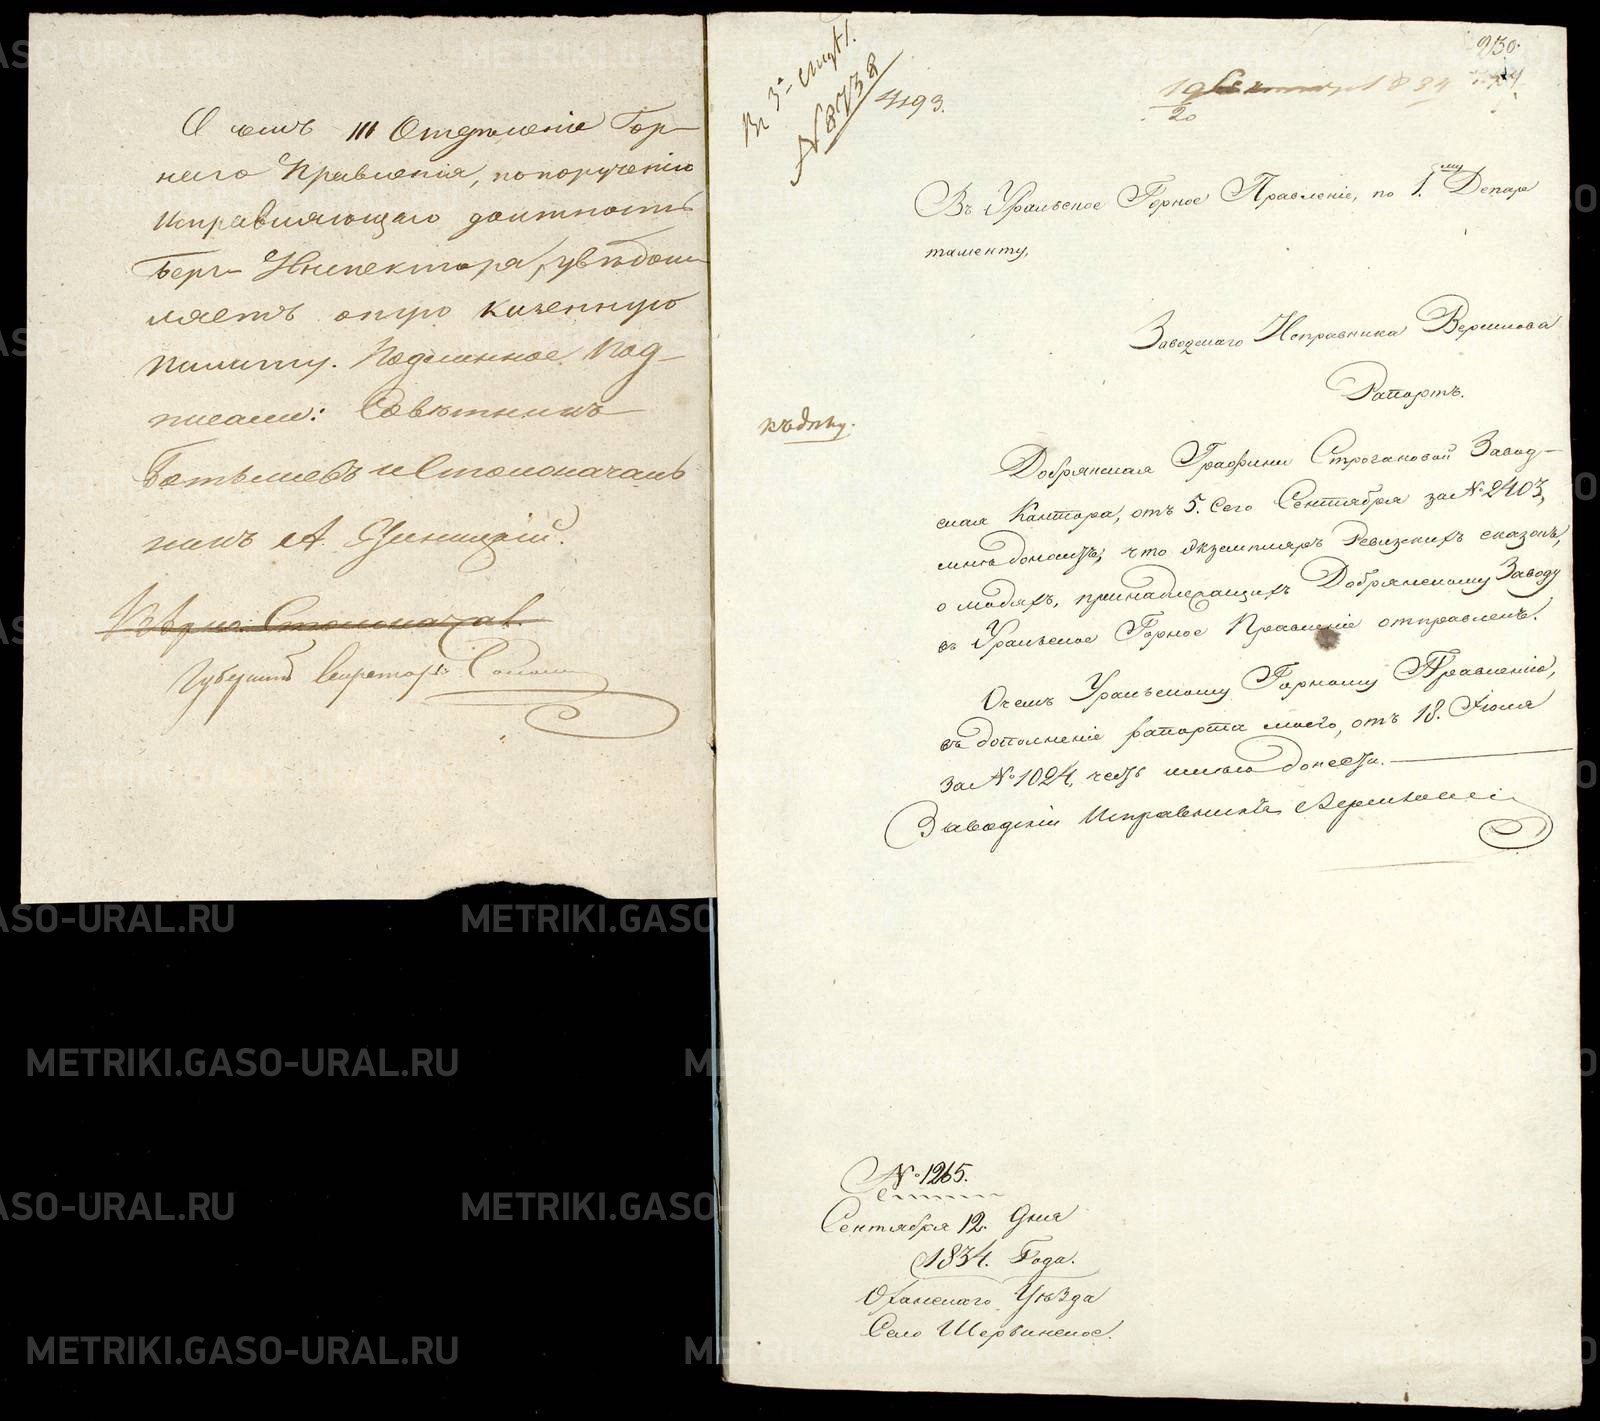 О чемъ III Отделеніе Гор-
наго Правленія, по порученію
Исправляющаго должность
Бергъ Инспектора, увѣдом-
ляетъ оную казенную
палату. Подлинное под-
писали: Совѣтникъ
и Столоначаль-
никъ А.
Вѣрно: Столоначал.
Губернскій Секретарь
230.
Въ 3-й столъ.
№ 8738
4193.
19 Сентября 1834
20
Въ Уральское Горное Правленіе, по 1.му Депар
таменту,
Заводскаго Исправника Вершилова
Рапортъ.
къ дѣлу.
Добрянская Графини Строгановой Завод-
ская Контора, отъ 5. сего Сентября за № 2403,
мнѣ доноситъ; что экземпляръ Ревизскихъ сказокъ,
о людяхъ, принадлежащихъ Добрянскому Заводу
въ Уральское Горное Правленіе отправленъ.
О чемъ Уральскому Горному Правленію,
въ дополненіе рапорта моего, отъ 18. Іюля
за № 1024, честь имѣю донести.
Заводскій Исправникъ
№ 1265.
Сентября 12. дня
1834. Года.
Оханскаго Уѣзда
Село Шервинское.
METRIKI.GASO-URAL.RU